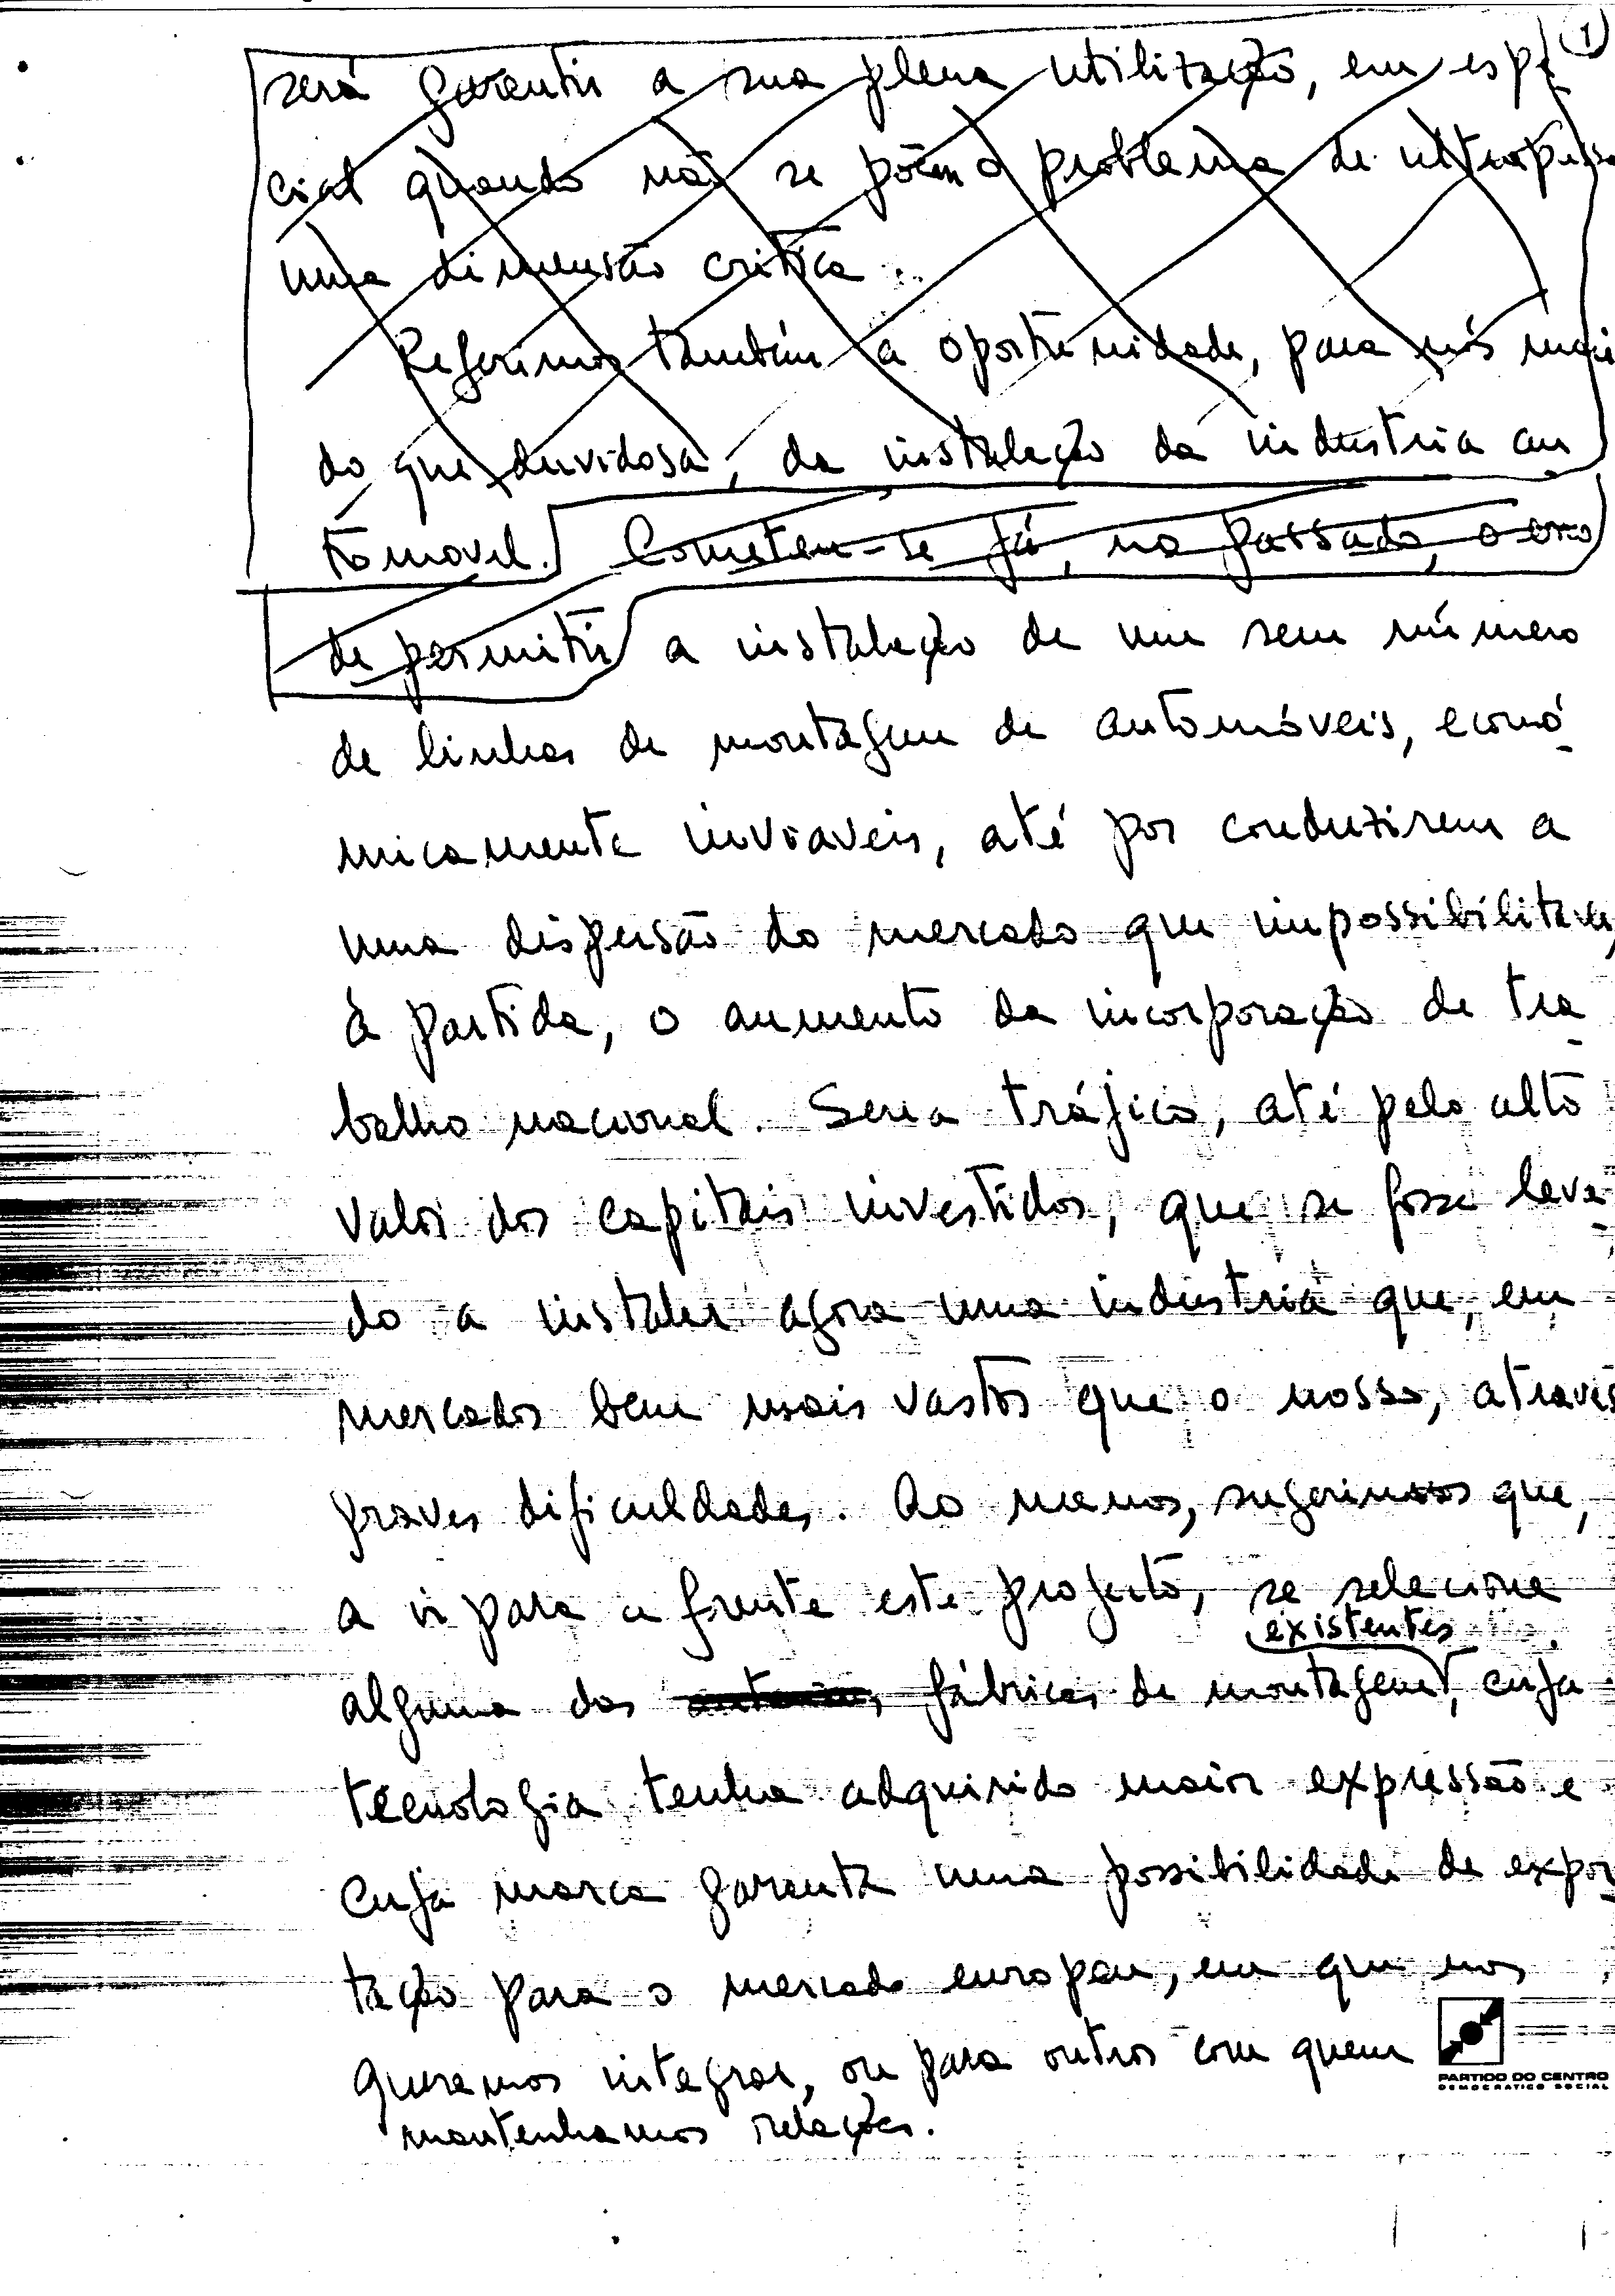 1
será garantir a sua plena utilização, em espe
cial quando não se põem o problema de ultrapassa
uma dimensão critica.
Referimos também a oportunidade, para nós mais
do que duvidosa, da instalação da industria au
tomovel. Cometeu-se já, no passado, o erro
de permitir a instalação de um sem número
de linhas de montagem de automóveis, econó
micamente inviaveis, até por conduzirem a
uma dispersão do mercado que impossibilitava,
à partida, o aumento da incorporação de tra
balho nacional. Seria trágico, até pelo alto
valor dos capitais investidos, que se fosse leva
do a instalar agora uma industria que, em
mercados bem mais vastos que o nosso, atraves
graves dificuldades. Ao menos, sugerimos que,
a ir para a frente este projecto, se selecione
existentes
alguma das fábricas de montagem, cuja
tecnologia tenha adquirido maior expressão e
cuja marca garanta uma possibilidade de expor
tação para o mercado europeu, em que nos
queremos integrar, ou para outros com quem
mantenhamos relações.
PARTIDO DO CENTRO
DEMOCRATICO SOCIAL